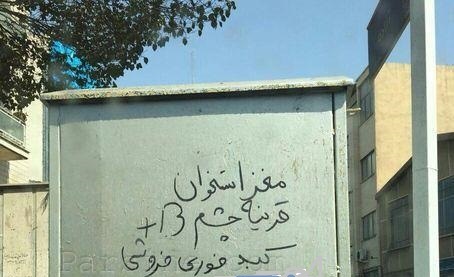 مغز استخوان
قرنیه چشم B+
کبد فوری فروشی